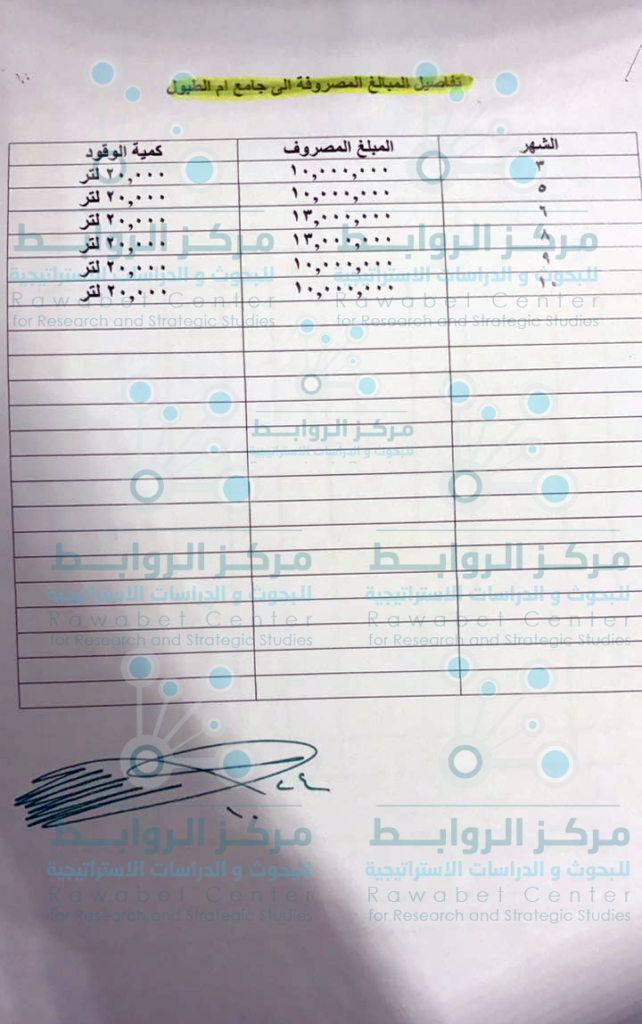 تفاصيل المبالغ المصروفة الى جامع ام الطبول
الشهر المبلغ المصروف كمية الوقود
٣ ١٠,٠٠٠,٠٠٠ ٢٠,٠٠٠ لتر
٥ ١٠,٠٠٠,٠٠٠ ٢٠,٠٠٠ لتر
٦ ١٣,٠٠٠,٠٠٠ ٢٠,٠٠٠ لتر
٨ ١٣,٠٠٠,٠٠٠ ٢٠,٠٠٠ لتر
٩ ١٠,٠٠٠,٠٠٠ ٢٠,٠٠٠ لتر
١٠ ١٠,٠٠٠,٠٠٠ ٢٠,٠٠٠ لتر
مركز الروابط
للبحوث و الدراسات الاستراتيجية
Rawabet Center
for Research and Strategic Studies
مركز الروابط
للبحوث و الدراسات الاستراتيجية
Rawabet Center
for Research and Strategic Studies
مركز الروابط
للبحوث و الدراسات الاستراتيجية
مركز الروابط
للبحوث و الدراسات الاستراتيجية
Rawabet Center
for Research and Strategic Studies
مركز الروابط
للبحوث و الدراسات الاستراتيجية
Rawabet Center
for Research and Strategic Studies
١٠
مركز الروابط
للبحوث و الدراسات الاستراتيجية
Rawabet Center
for Research and Strategic Studies
مركز الروابط
للبحوث و الدراسات الاستراتيجية
Rawabet Center
for Research and Strategic Studies